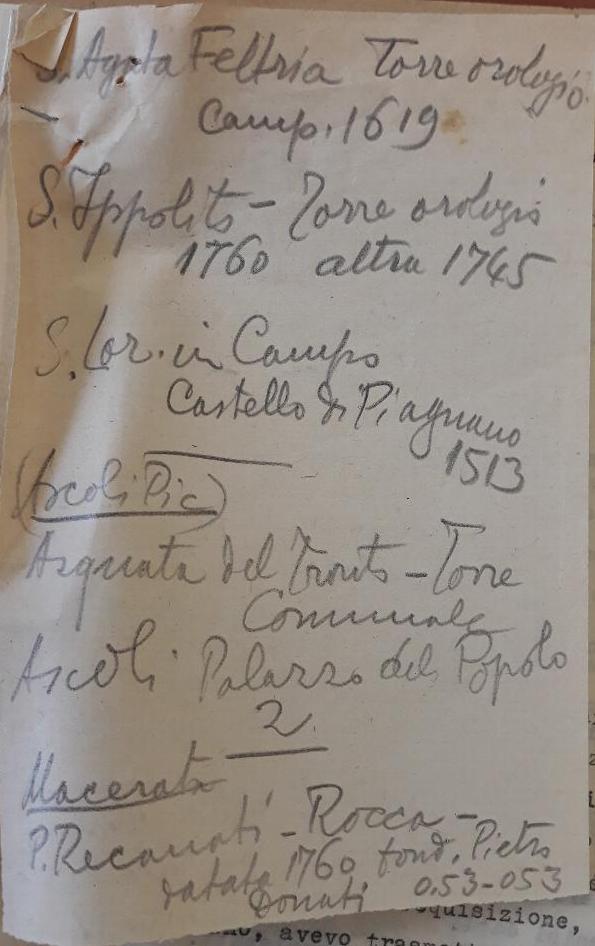 S. Agata Feltria Torre orologio
Camp. 1619
S. Ippolito - Torre orologio
1760 altra 1745
S. Lor. in Campo
Castello di Piagnano
1513
(Ascoli Pic)
Arquata del Tronto - Torre
Comunale
Ascoli Palazzo del Popolo
2
Macerata
P. Recanati - Rocca -
datata 1760 fond. Pietro
Donati 0.53-053
quisizione,
avevo